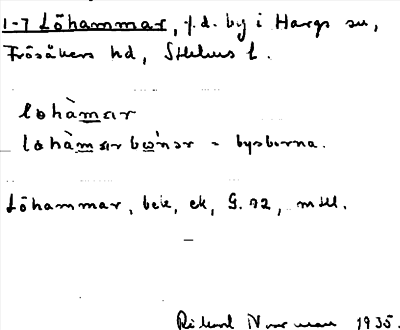 1-7 Löhammar, f.d. by i Hargs sn,
Frösåkers hd, Sthlms l.
lohàmar
lohàmarbònər = byborna.
Löhammar, bek, ek, G. 92, mtl.
Rikard Norrman 1935.